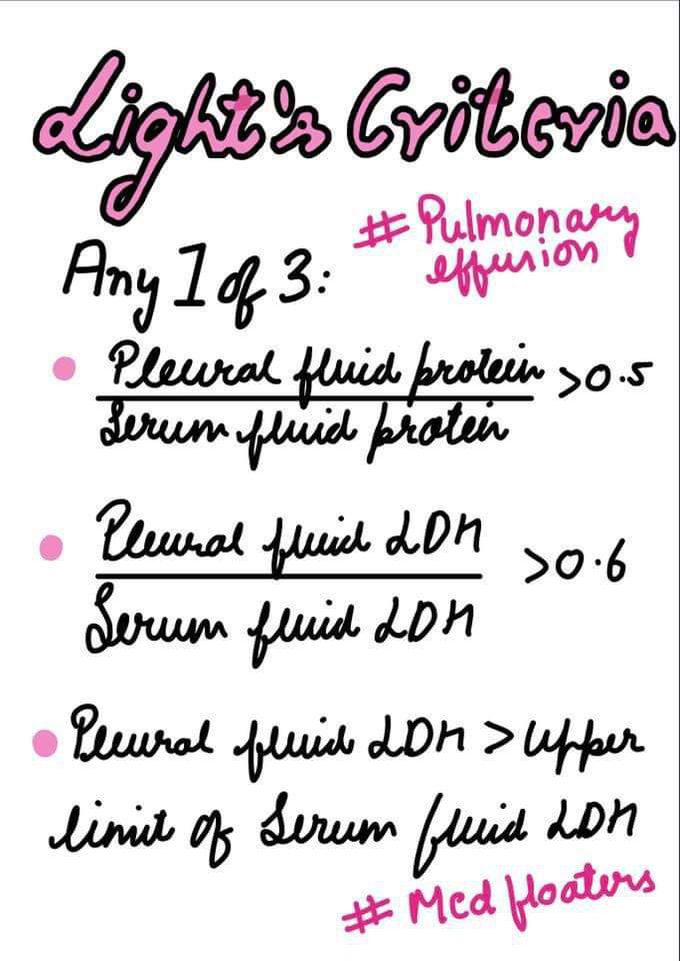 Light's Criteria
# Pulmonary
effusion
Any 1 of 3:
Pleural fluid protein >0.5
Serum fluid protein
Pleural fluid LDH >0.6
Serum fluid LDH
Pleural fluid LDH > upper
limit of Serum fluid LDH
# Med floaters